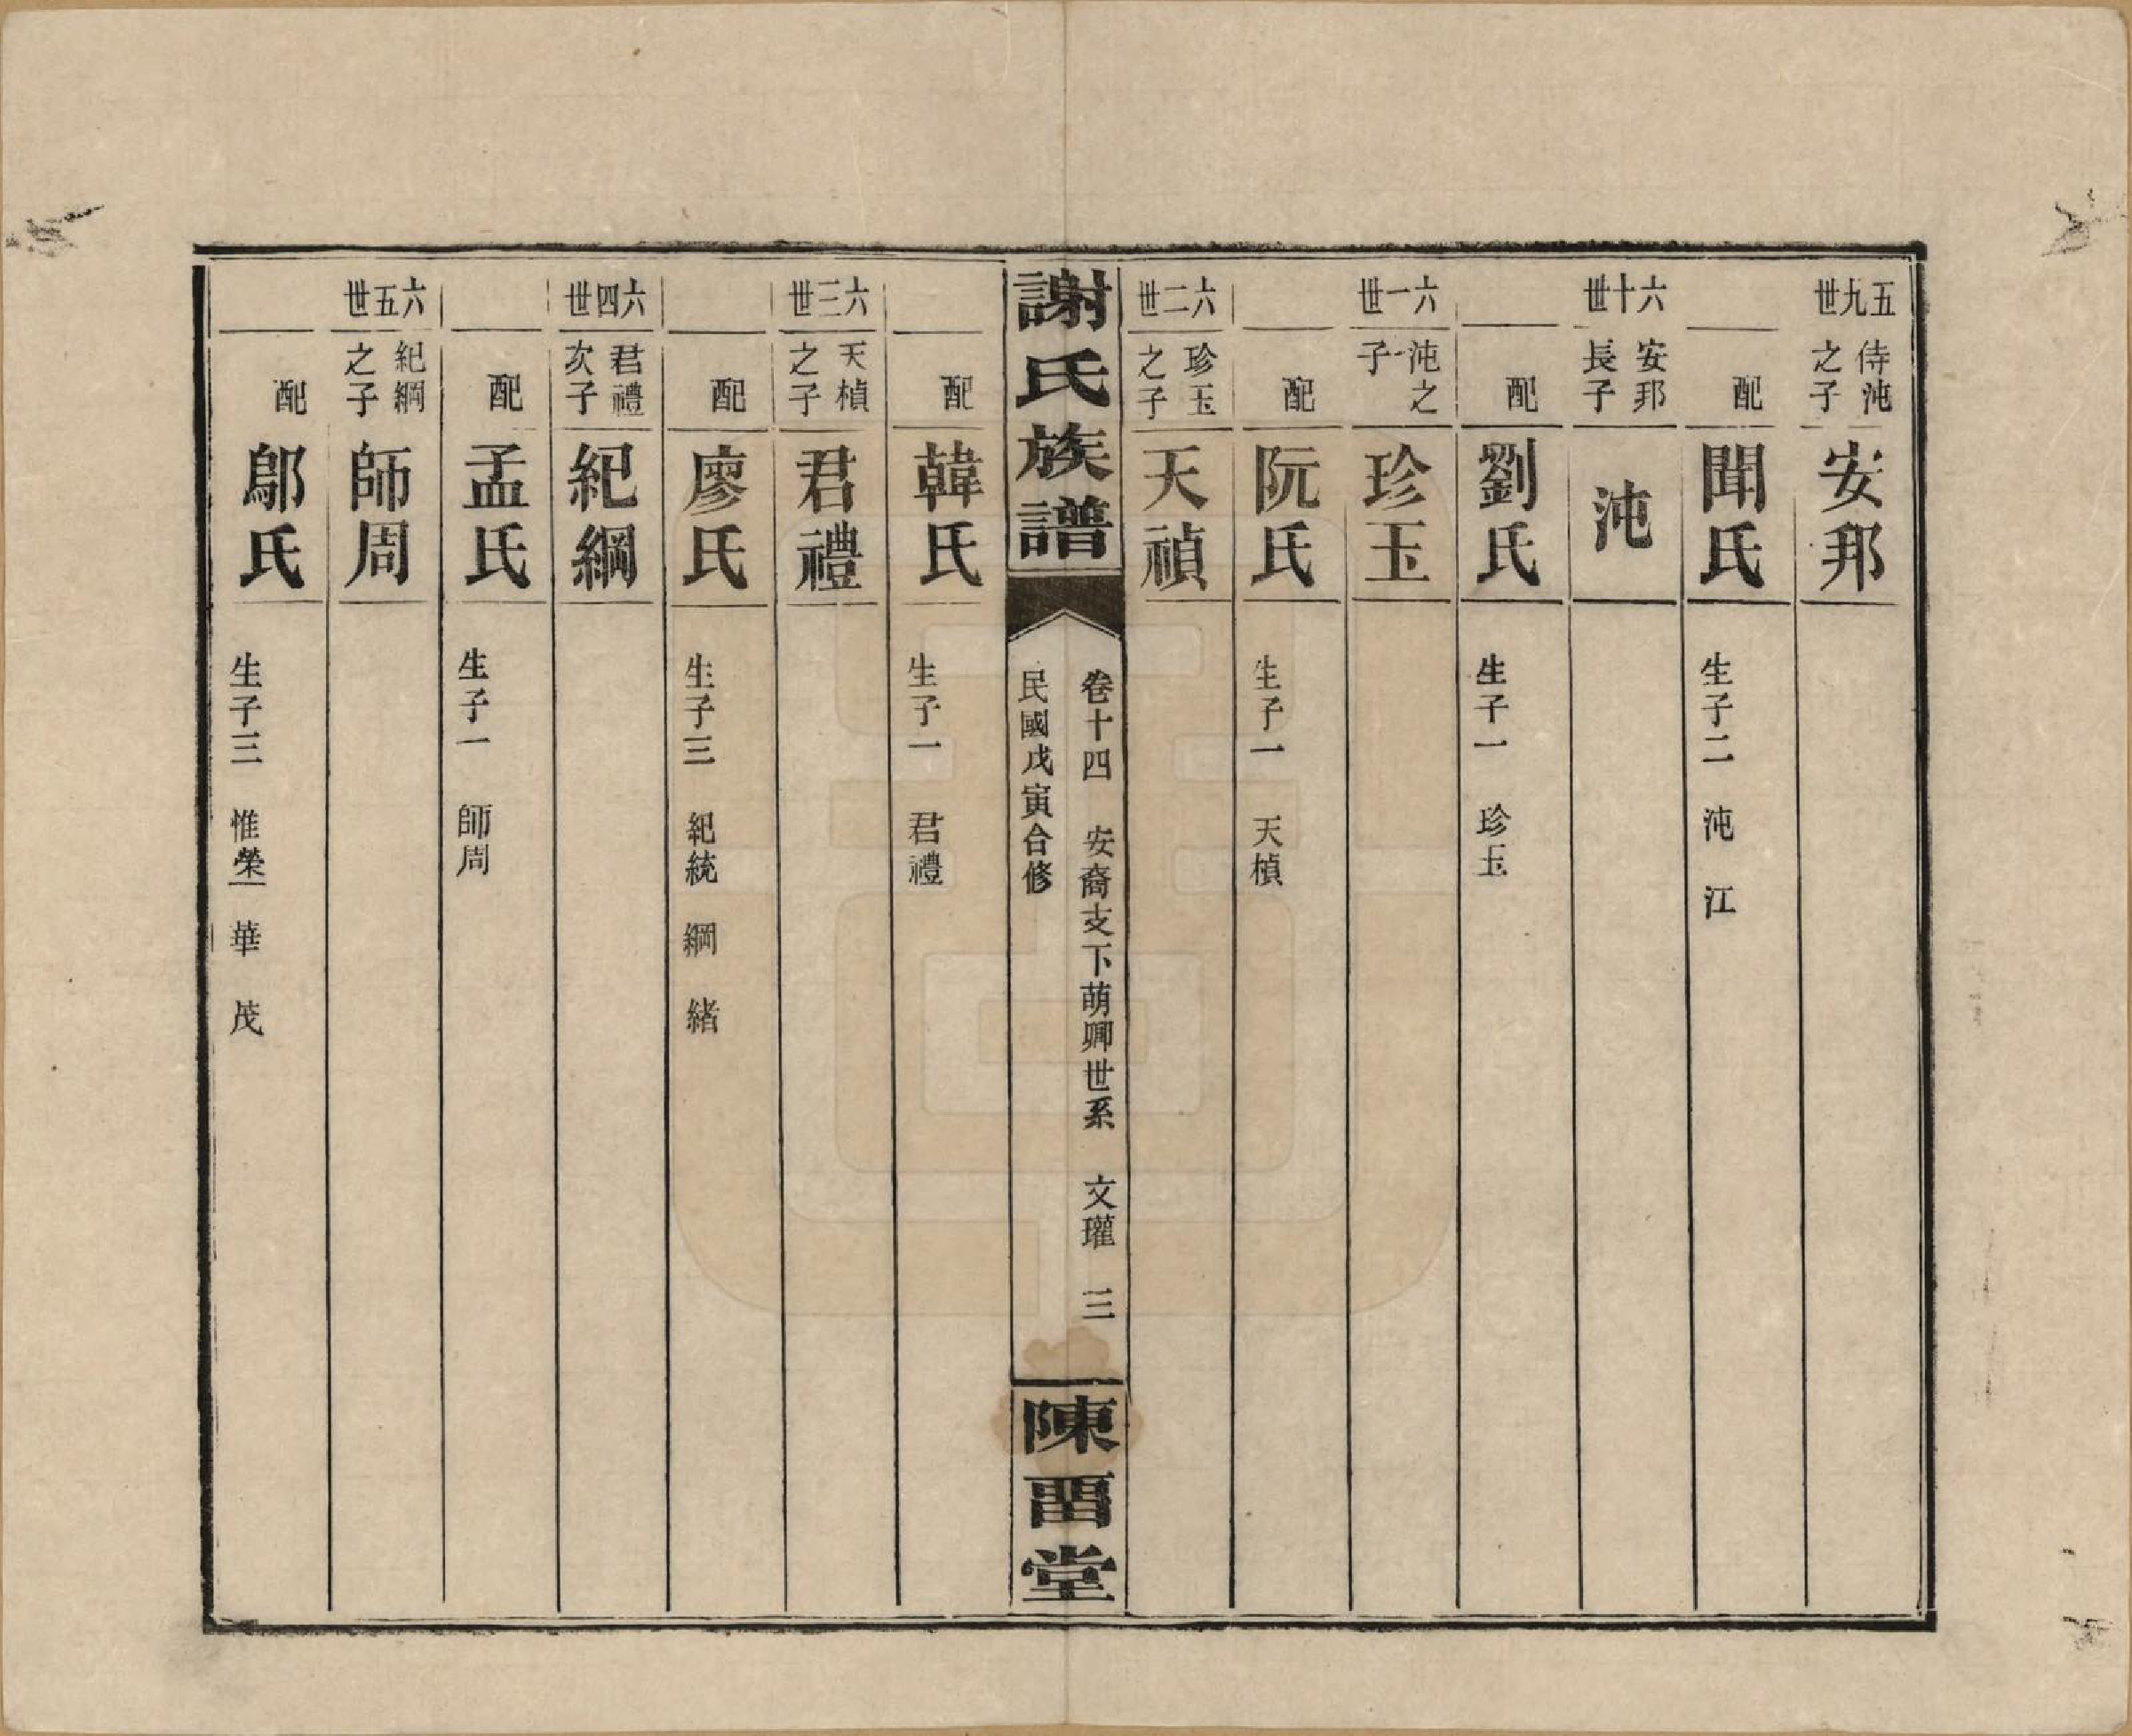 五九世
侍沌之子
安邦
配
聞氏
生子二 沌 江
六十世
安邦長子
沌
配
劉氏
生子一 珍玉
六一世
沌之子
珍玉
配
阮氏
生子一 天楨
六二世
珍玉之子
天禎
謝氏族譜
卷十四 安裔支下萌卿世系 文瓘 三
民國戊寅合修
陳畱堂
配
韓氏
生子一 君禮
六三世
天楨之子
君禮
配
廖氏
生子三 紀統 綱 緒
六四世
君禮次子
紀綱
配
孟氏
生子一 師周
六五世
紀綱之子
師周
配
鄔氏
生子三 惟榮 華 茂